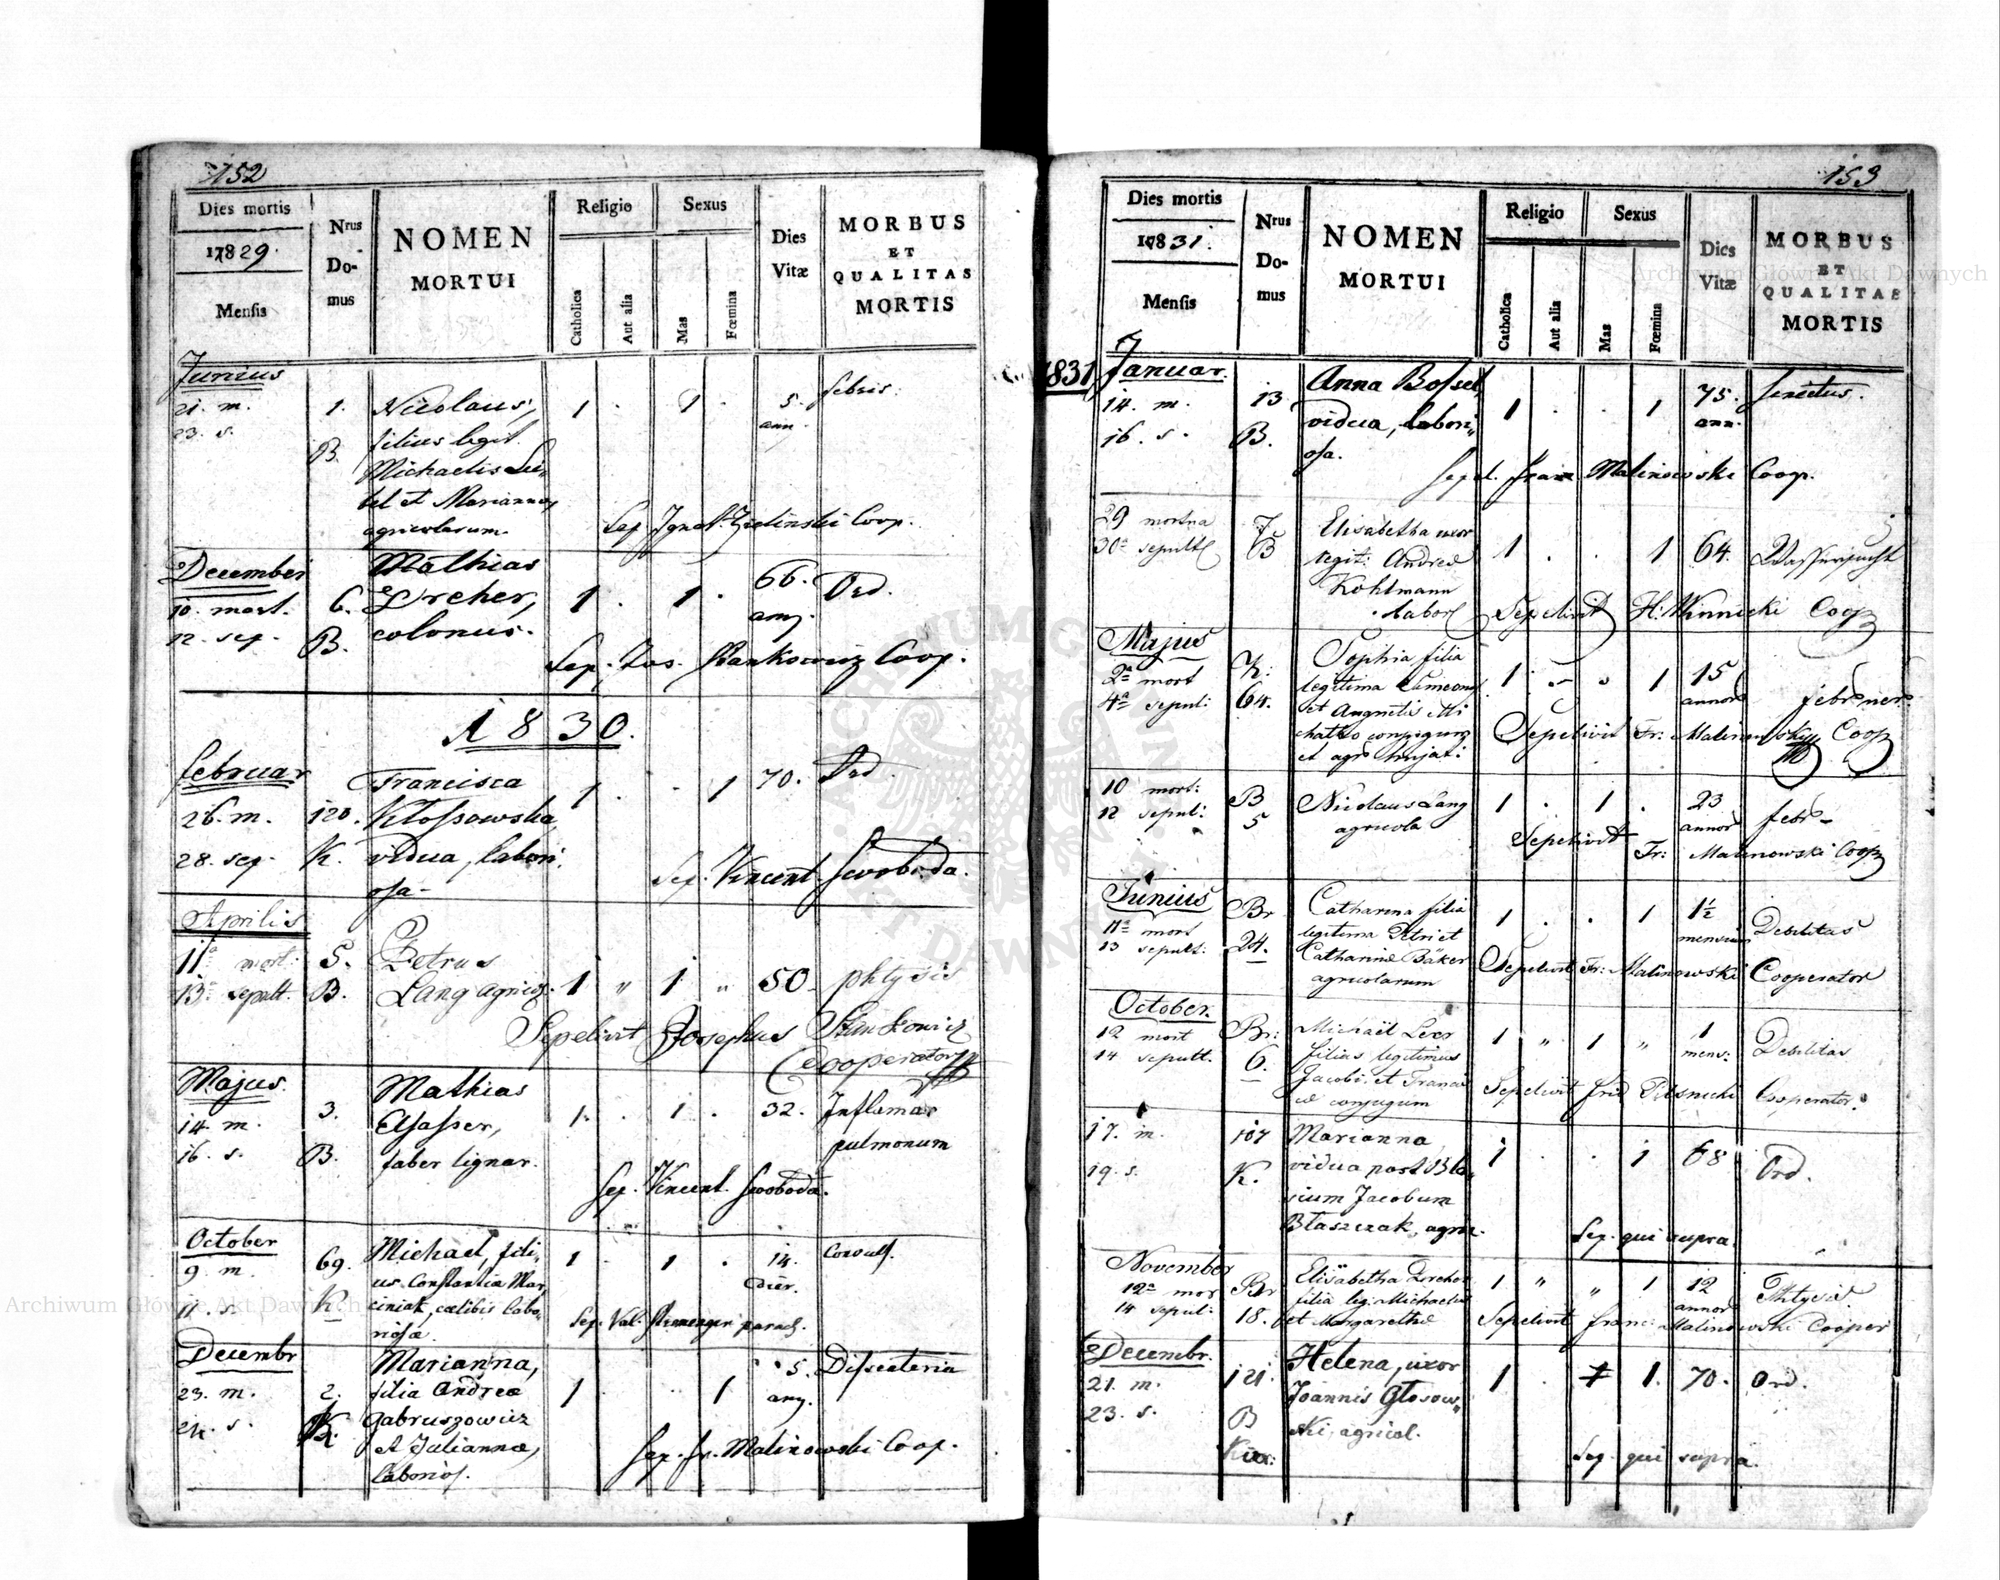 152
Dies mortis
Nrus Do- mus
NOMEN MORTUI
Religio
Sexus
Dies Vitæ
MORBUS ET QUALITAS MORTIS
1829.
Mensis
Catholica
Aut alia
Mas
Fœmina
Junius
21. m. 1. Nicolaus, 1 . 1 . 5. febris.
23. s. filius legit. ann.
B. Michaelis
bel et Mariannæ
agricolarum. Sep. Ignat. Zielinski Coop.
December Mathias 66.
10. mort. 6. Dreher, 1 . 1 . Ord.
12. sep. B. colonus.
Sep. Jos. Stankowicz Coop.
1830.
Februar Francisca 1 . . 1 70. Ord.
26. m. 120. Kłossowska
28. sep. K. vidua, labori
osa. Sep. Vincent Swoboda.
Aprilis
11a mort. 5. Petrus
13a sepult. B. Lang agricol. 1 " 1 " 50 phtysis
Sepelivit Josephus Stankowicz
Cooperator
Majus. Mathias
14. m. 3. 1. . 1 . 32. Inflamãõ
16. s. B. faber lignar. pulmonum
Sep. Vincent. Swoboda.
October
9. m. 69. Michael, fili- 1 1 . 14. Convuls.
us Constantiæ Mar dier.
11. s. K ciniak, cælibis labo-
riosæ Sep. Val. paroch.
Decembr Marianna, 5. Dissenteria
23. m. 2. filia Andreæ 1 . . 1
24. s. K. Gabruszowicz
et Juliannæ, Sep. Fr. Malinowski Coop.
laborios.
153
Dies mortis
Nrus Do- mus
NOMEN MORTUI
Religio
Sexus
Dies Vitæ
MORBUS ET QUALITAS MORTIS
1831.
Mensis
Catholica
Aut alia
Mas
Fœmina
1831 Januar.
14. m. 13 Anna Bossel, 1 . . 1 75. senectus.
16. s. B. vidua, labori- ann.
osa.
Sepel. Franc Malinowski Coop.
29 mortua 7 Elisabetha uxor
30a sepulta B legit: Andreæ 1 . . 1 64. Wassersucht
Kohlmann
Labor Sepelivit H: Winnicki Coop
Majus Sophia filia
2a mort K: legitima 1 1 15
4a sepult: 64. et Angnetis annor febr ner.
conjugum Sepelivit Fr: Malinowski Coop
et agr hujat:
10 mort: B Nicolaus Lang 1 . 1 . 23 febr
12 sepul: 5 agricola annor
Sepelivit Fr: Malinowski Coop
Junius Br Catharina filia 1 . . 1 1½
11a mort legitima Petri et mensium Debilitas
13 sepult: 24. Catharinæ Bäker
agricolarum Sepelivit Fr: Malinowski Cooperator
October.
12 mort Br: Michaël Leer 1 " 1 " 1
14 sepult. 6. filius legitimus mens: Debilitas
Jacobi et Francis
cæ conjugum Sepelivit Frid Cooperator.
17. m. 107 Marianna 1 . . 1 68
19. s. K. vidua post Bla- Ord.
sium Jacobum
Błaszczak, agric. Sep. qui supra.
November
12a mor Br Elisabetha Dreher 1 " " 1 12 Phtysis
14 sepul: 18. filia leg: Michaelis annor
et Margarethæ Sepelivit Franc: Malinowski Cooper
Decembr. Helena, uxor
21. m. 121. Joannis Głosow- 1 . 1. 70. Ord.
23. s. B ski, agricol.
Sep. qui supra.
Archiwum Główne Akt Dawnych
Archiwum Główne Akt Dawnych